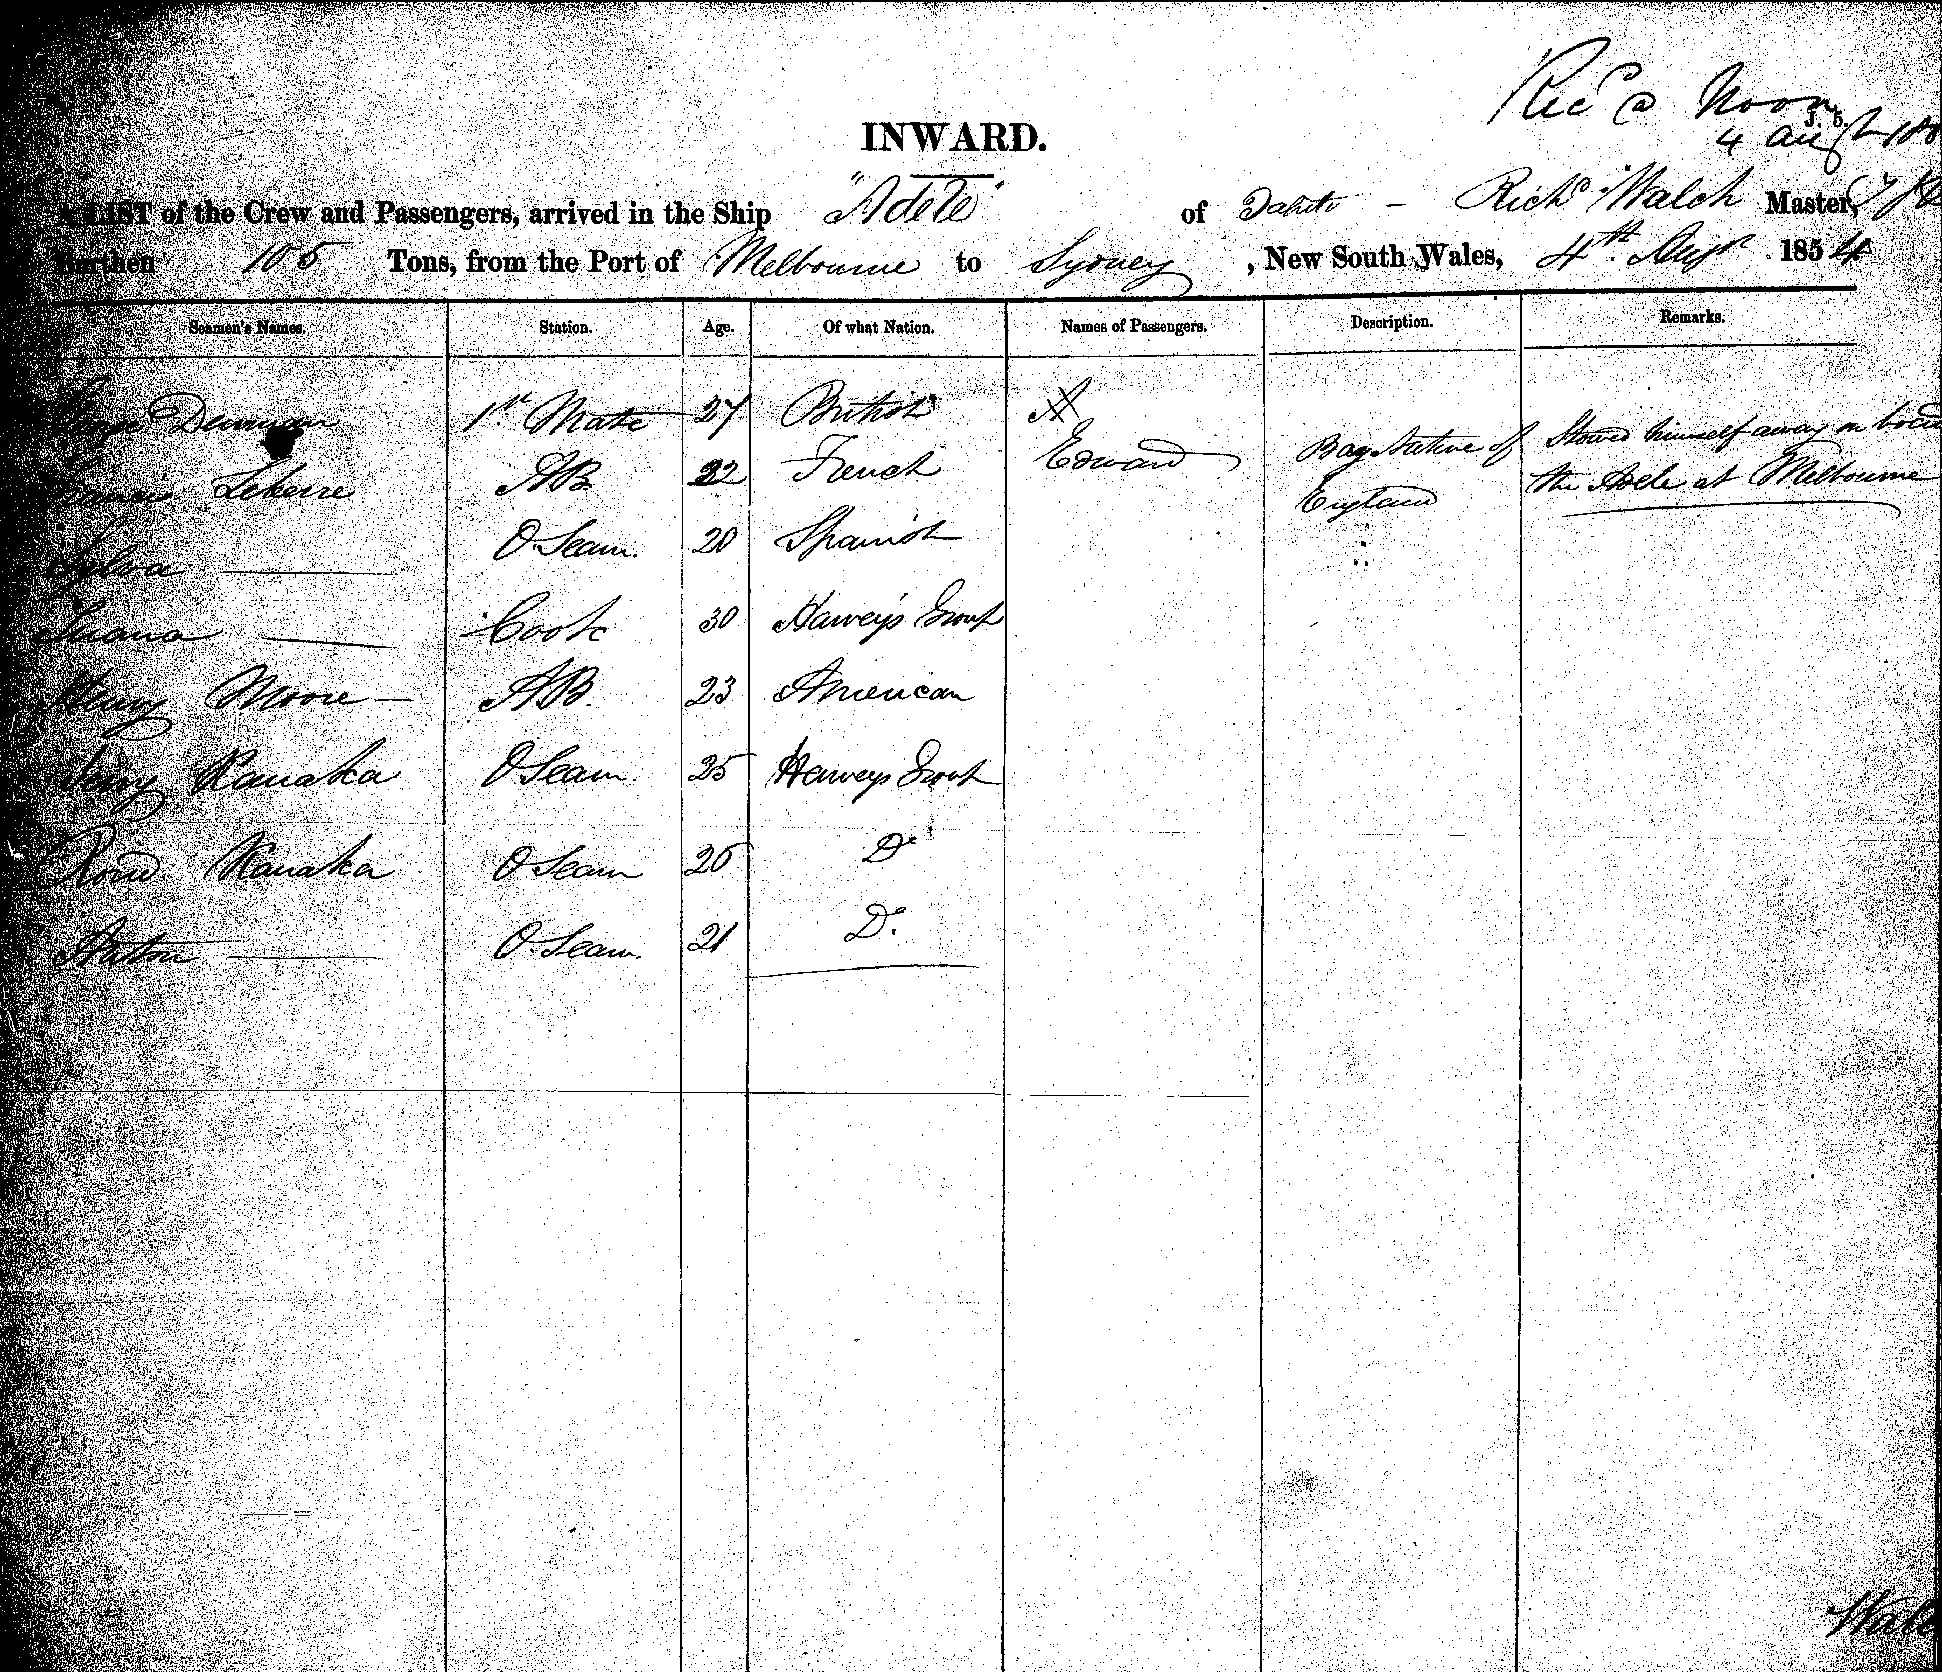 Rec^d @ Noon
J. B.
4 Aug^st 185
INWARD.
A LIST of the Crew and Passengers, arrived in the Ship "Adele" of Tahiti - Rich^d Walch Master,
Burthen 105 Tons, from the Port of Melbourne to Sydney , New South Wales, 4^th. Aug^t 1854
Seamen's Names. Station. Age. Of what Nation. Names of Passengers. Description. Remarks.
Denman 1^st. Mate 27 British A
Francis Lekerre AB 22 French Edward Boy Native of England Stowed himself away on board the Adele at Melbourne
Sylva O. Seam. 20 Spanish
Cook 30 Harveys Group
Henry Moore A B. 23 American
Kanaka O Seam. 25 Harveys Group
Kanaka O Seam 25 D^o
Anton O. Seam. 21 D^o.